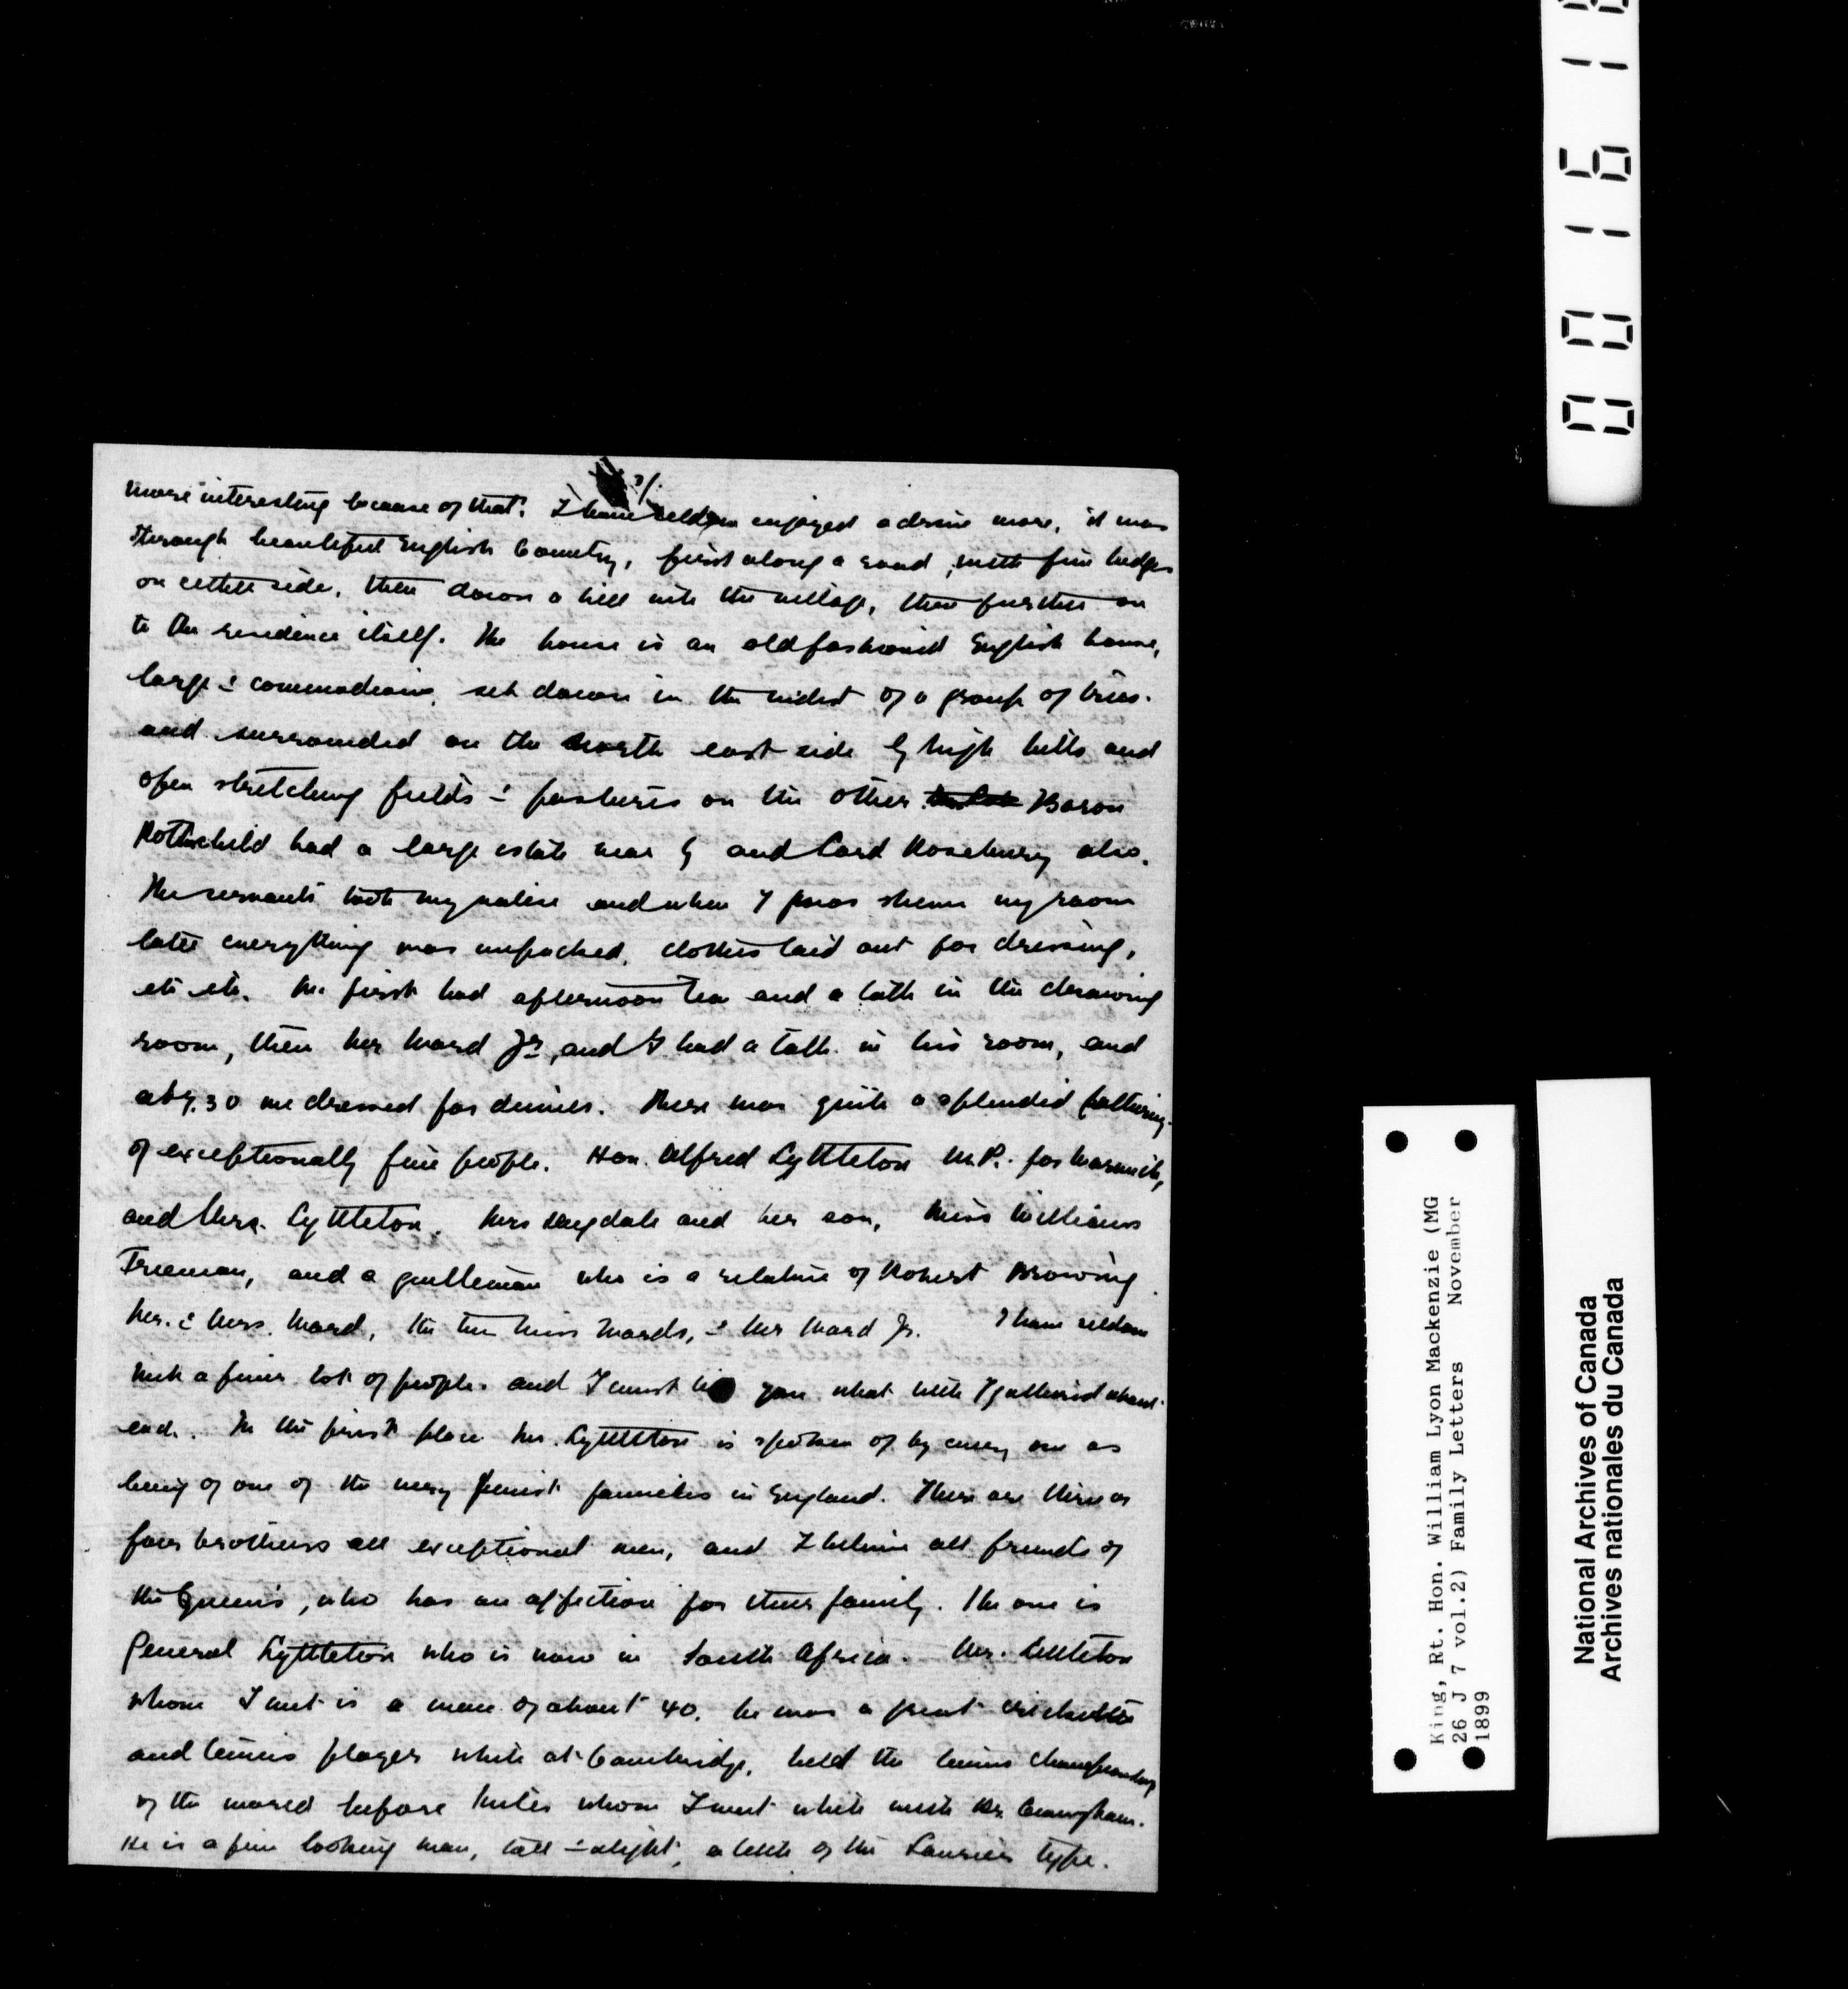 3/.
more interesting because of that. I have seldom enjoyed a drive more, it was
through beautiful English Country, first along a road, with fine hedges
on either side, then down a hill into the village, then further on
to the residence itself. The house is an oldfashioned English house,
large & commodious, set down in the midst of a group of trees.
and surrounded on the north east side by high hills and
open stretching fields & pastures on the other Baron
Rothschild had a large estate near by and Lord Rosebury also.
The servants took my valise and when I was shewn my room
later everything was unpacked, clothes laid out for dressing,
etc etc. We first had afternoon tea and a talk in the drawing
room, then Mr Ward Jr, and I had a talk in his room, and
at 7.30 we dressed for dinner. There was quite a splendid gathering
of exceptionally fine people. Hon. Alfred Lyttleton M.P. for Warwick,
and Mrs. Lyttleton, Mrs Dugdale and her son, Miss Williams
Freeman, and a gentleman who is a relative of Robert Browing
Mr. & Mrs. Ward, the two Miss Wards, & Mr Ward Jr. I have seldom
met a finer lot of people. and I must tell you what little I gathered about
each. In the first place Mr. Lyttleton is spoken of by every one as
being of one of the very finest families in England. There are three or
four brothers all exceptional men, and I believe all friends of
the Queen's, who has an affection for their family. The one is
General Lyttleton who is now in South Africa. Mr. Littleton
whom I met is a man of about 40, he was a great cricketter
and tennis player while at Cambridge, held the tennis championship
of the world before Miles whom I met while with Dr. Cunningham.
He is a fine looking man, tall & slight, a little of the Laurier type.
King, Rt. Hon. William Lyon Mackenzie (MG
26 J 7 vol.2) Family Letters November
1899
National Archives of Canada
Archives nationales du Canada